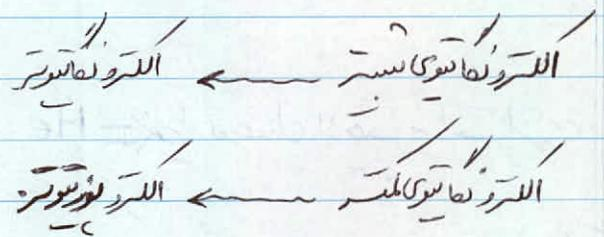 الکترونگاتیوی بیشتر ← الکترونگاتیوتر
الکترونگاتیوی کمتر ← الکتروپوزیتیوتر